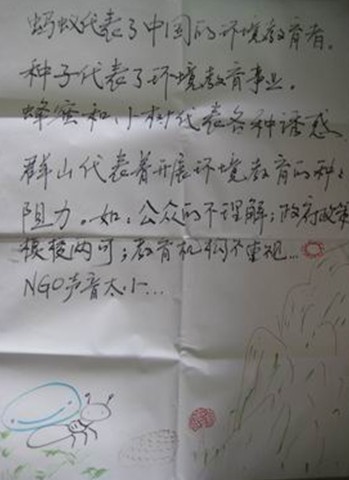 蚂蚁代表了中国的环境教育者。
种子代表了环境教育事业。
蜂蜜和小树代表各种诱惑
群山代表着开展环境教育的种々
阻力。如：公众的不理解；政府政策
模棱两可；教育机构不重视...
NGO声音太小...